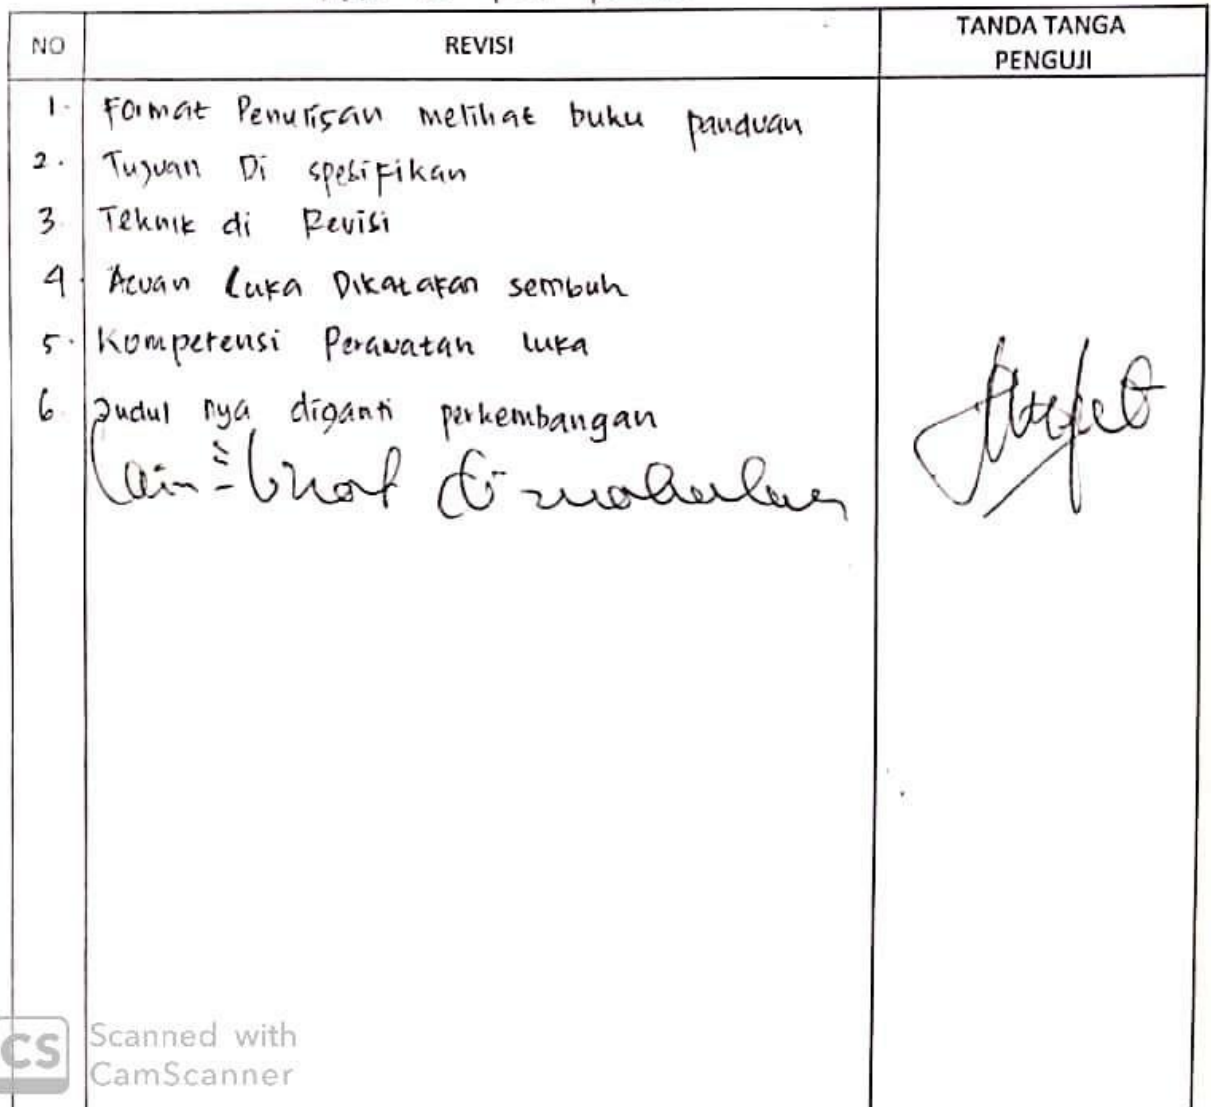 NO REVISI TANDA TANGA PENGUJI
1. Format Penulisan melihat buku panduan
2. Tujuan Di spesifikan
3. Teknik di Revisi
4. Acuan luka Dikatakan sembuh
5. Kompetensi Perawatan luka
6. Judul nya diganti perkembangan
Lain = lihat di
CS Scanned with
CamScanner